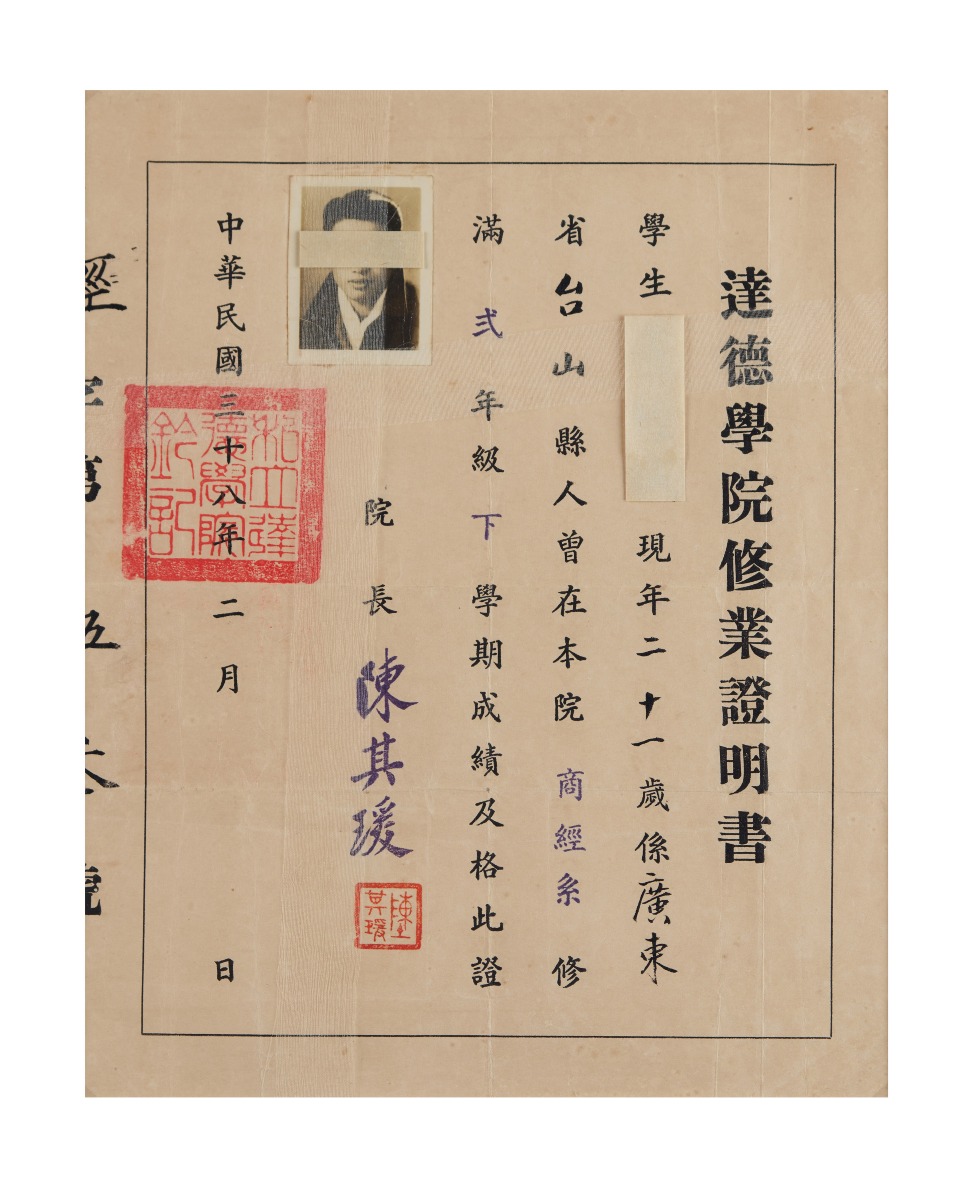 達德學院修業證明書
學生 現年二十一歲係廣東
省台山縣人曾在本院商經系修
滿弍年級下學期成績及格此證
院長陳其瑗
陳其瑗
中華民國三十八年二月 日
私立達德學院鈐記
經字第 五 六 號